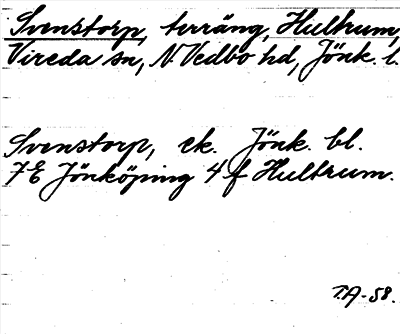 Svenstorp, terräng, Hultrum,
Vireda sn, N. Vedbo hd, Jönk. l.
Svenstorp, ek. Jönk. bl.
7E Jönköping 4 f Hultrum.
T.A-58.